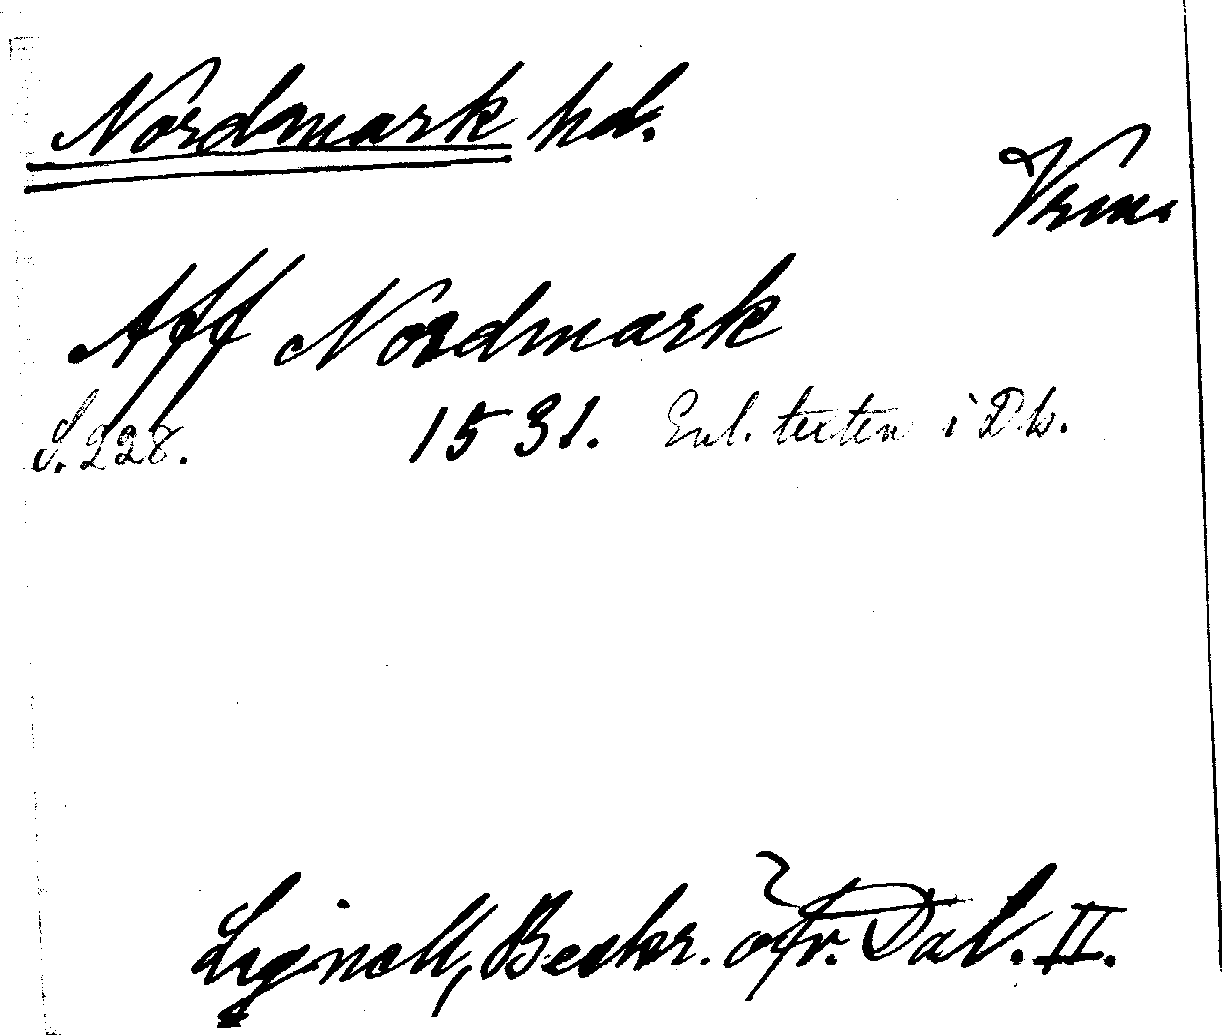 Nordmark hd.
Vrm.
Aff Nordmark
S. 228. 1531. Enl. texten i Dk.
Lignell, Beskr. öfv. Dal. II.